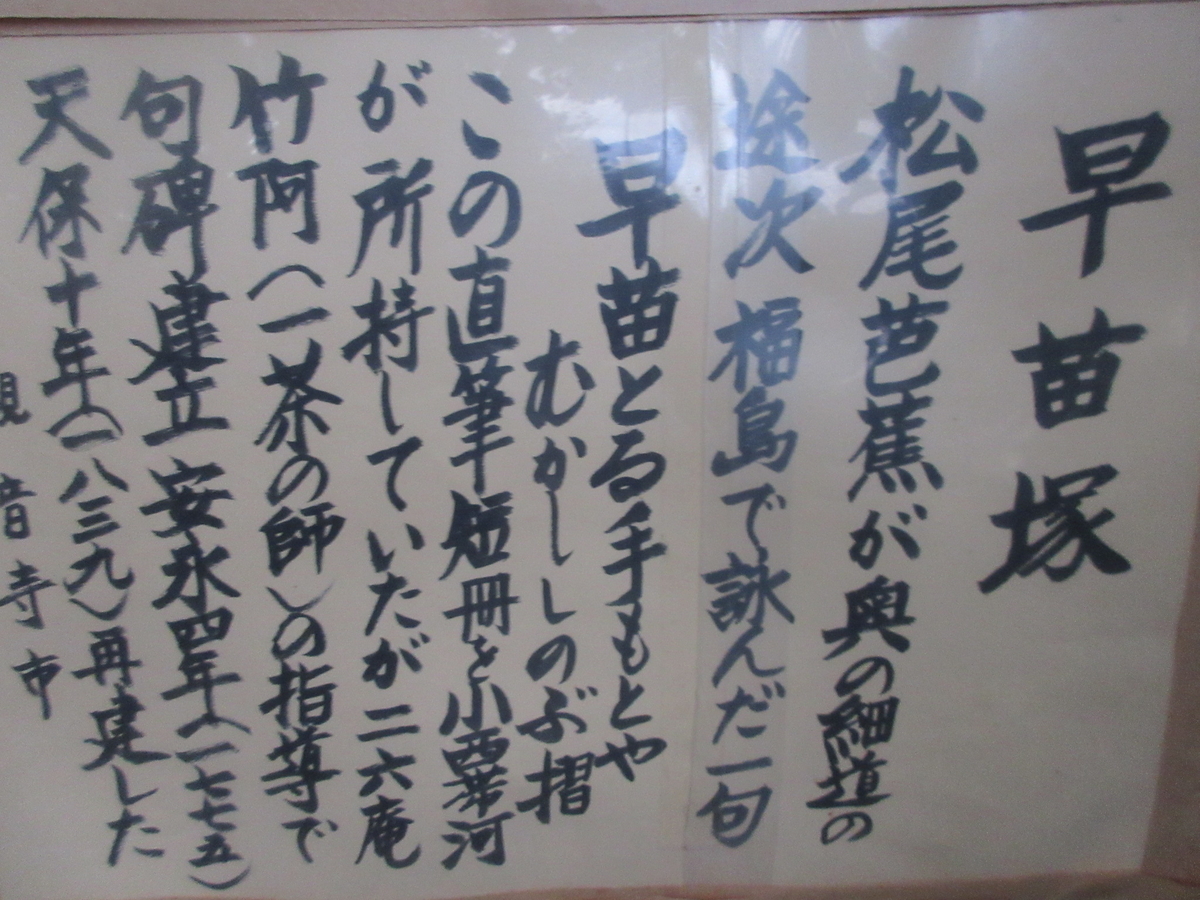 早苗塚
松尾芭蕉が奥の細道の
途次 福島で詠んだ一句
早苗とる手もとや
むかししのぶ摺
この直筆短冊を小西帯河
が所持していたが二六庵
竹阿(一茶の師)の指導で
句碑建立 安永四年(一七七五)
天保十年(一八三九)再建した
観音寺市